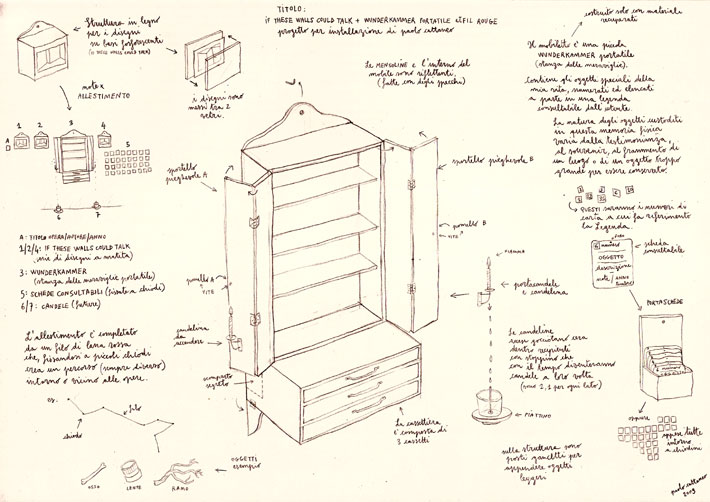 TITOLO:
if THESE WALLS COULD TALK + WUNDERKAMMER PORTATILE e IL FIL ROUGE
progetto per installazione di paolo cattaneo
Struttura in legno
per i disegni
su basi fosforescenti
(if THESE WALLS COULD TALK)
i disegni sono
messi tra 2
vetri.
Le MENSOLINE e l'interno del
mobile sono riflettenti.
(fatte con degli specchi)
costruito solo con materiali
recuperati
Il mobiletto è una piccola
WUNDERKAMMER portatile
(stanza delle meraviglie).
Contiene gli oggetti speciali della
mia vita, numerati ed elencati
a parte in una legenda
consultabile dall'utente.
La natura degli oggetti custoditi
in questa memoria fisica
varia dalla testimonianza,
al souvenir, al frammento di
un luogo o di un oggetto troppo
grande per essere conservato.
QUESTI saranno i numeri di
carta a cui fa riferimento
la Legenda.
note x
ALLESTIMENTO
1 2 3 4
A
5
6 7
A: TITOLO OPERA/AUTORE/ANNO
1/2/4: IF THESE WALLS COULD TALK
serie di disegni a matita)
3: WUNDERKAMMER
(stanza delle meraviglie portatile)
5: SCHEDE CONSULTABILI (fissate a chiodi)
6/7: CANDELE (future)
L'allestimento è completato
da un filo di lana rossa
che, fissandosi a piccoli chiodi
crea un percorso (sempre diverso)
intorno o vicino alle opere.
es.
filo
chiodo
OSSO
LENTE
RAMO
OGGETTI
esempio
sportello
pieghevole A
sportello pieghevole B
pomello A
VITE
pomello B
VITE
candelina
da
accendere
scomparto
segreto
La cassettiera
è composta di
3 cassetti
FIAMMA
portacandele
e candelina
Le candeline
cera
dentro recipienti
con stoppino che
con il tempo diventeranno
candele a loro volta
(sono 2, 1 per ogni lato)
PIATTINO
sulla struttura sono
posti gancetti per
appendere oggetti
leggeri
numero
OGGETTO
descrizione
note / anno
scheda
consultabile
PORTASCHEDE
oppure
appese tutte
intorno
a chiodini
paolo cattaneo
2009